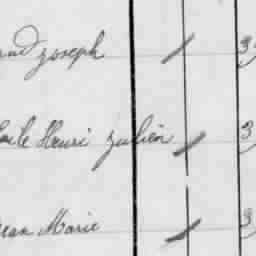 Joseph 3
Henri Julien 3
Jean Marie 3